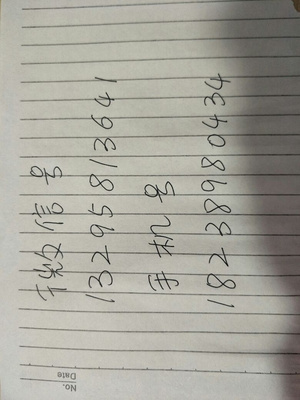 微信号
13295813641
手机号
18238980434
No.
Date